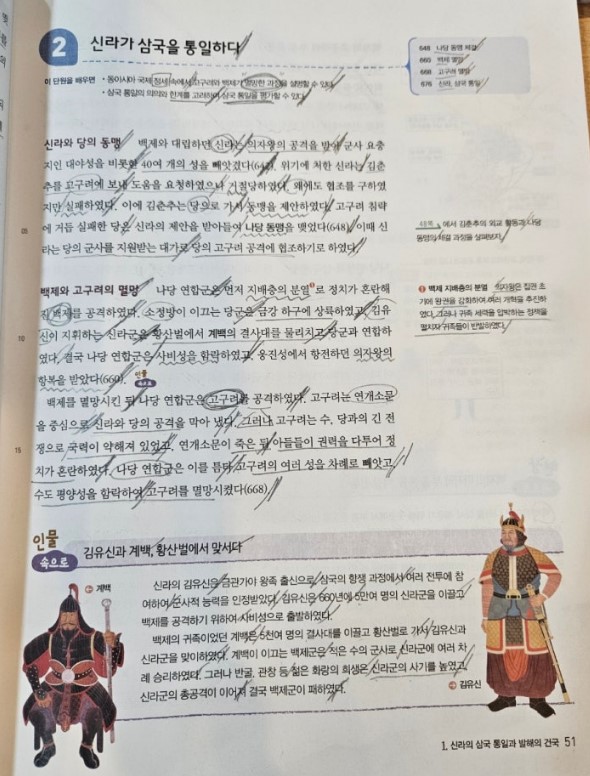 2 신라가 삼국을 통일하다
648 나당 동맹 체결
660 백제 멸망
668 고구려 멸망
676 신라, 삼국 통일
이 단원을 배우면 • 동아시아 국제 정세 속에서 고구려와 백제가 멸망한 과정을 설명할 수 있다.
• 삼국 통일의 의의와 한계를 고려하여 삼국 통일을 평가할 수 있다.
신라와 당의 동맹 백제와 대립하면 신라는 의자왕의 공격을 받아 군사 요충
지인 대야성을 비롯한 40여 개의 성을 빼앗겼다(642). 위기에 처한 신라는 김춘
추를 고구려에 보내 도움을 요청하였으나 거절당하였다. 왜에도 협조를 구하였
지만 실패하였다. 이에 김춘추는 당으로 가서 동맹을 제안하였다. 고구려 침략
05 에 거듭 실패한 당은 신라의 제안을 받아들여 나당 동맹을 맺었다(648). 이때 신
라는 당의 군사를 지원받는 대가로 당의 고구려 공격에 협조하기로 하였다.
에서 김춘추의 외교 활동과 나당
동맹의 체결 과정을 살펴보자.
백제와 고구려의 멸망 나당 연합군은 먼저 지배층의 분열❶로 정치가 혼란해
진 백제를 공격하였다. 소정방이 이끄는 당군은 금강 하구에 상륙하였고, 김유
10 신이 지휘하는 신라군은 황산벌에서 계백의 결사대를 물리치고 당군과 연합하
였다. 결국 나당 연합군은 사비성을 함락하였고, 웅진성에서 항전하던 의자왕의
항복을 받았다(660). 인물 속으로
백제를 멸망시킨 뒤 나당 연합군은 고구려를 공격하였다. 고구려는 연개소문
을 중심으로 신라와 당의 공격을 막아 냈다. 그러나 고구려는 수, 당과의 긴 전
15 쟁으로 국력이 약해져 있었고, 연개소문이 죽은 뒤 아들들이 권력을 다투어 정
치가 혼란하였다. 나당 연합군은 이를 틈타 고구려의 여러 성을 차례로 빼앗고,
수도 평양성을 함락하여 고구려를 멸망시켰다(668).
❶ 백제 지배층의 분열 의자왕은 집권 초
기에 왕권을 강화하여 여러 개혁을 추진하
였다. 그러나 귀족 세력을 압박하는 정책을
펼치자 귀족들이 반발하였다.
인물 속으로 김유신과 계백, 황산벌에서 맞서다
계백
신라의 김유신은 금관가야 왕족 출신으로, 삼국의 항쟁 과정에서 여러 전투에 참
여하여 군사적 능력을 인정받았다. 김유신은 660년에 5만여 명의 신라군을 이끌고
백제를 공격하기 위하여 사비성으로 출발하였다.
백제의 귀족이었던 계백은 5천여 명의 결사대를 이끌고 황산벌로 가서 김유신과
신라군을 맞이하였다. 계백이 이끄는 백제군은 적은 수의 군사로 신라군에 여러 차
례 승리하였다. 그러나 반굴, 관창 등 젊은 화랑의 희생은 신라군의 사기를 높였고,
신라군의 총공격이 이어져 결국 백제군이 패하였다.
김유신
1. 신라의 삼국 통일과 발해의 건국 51